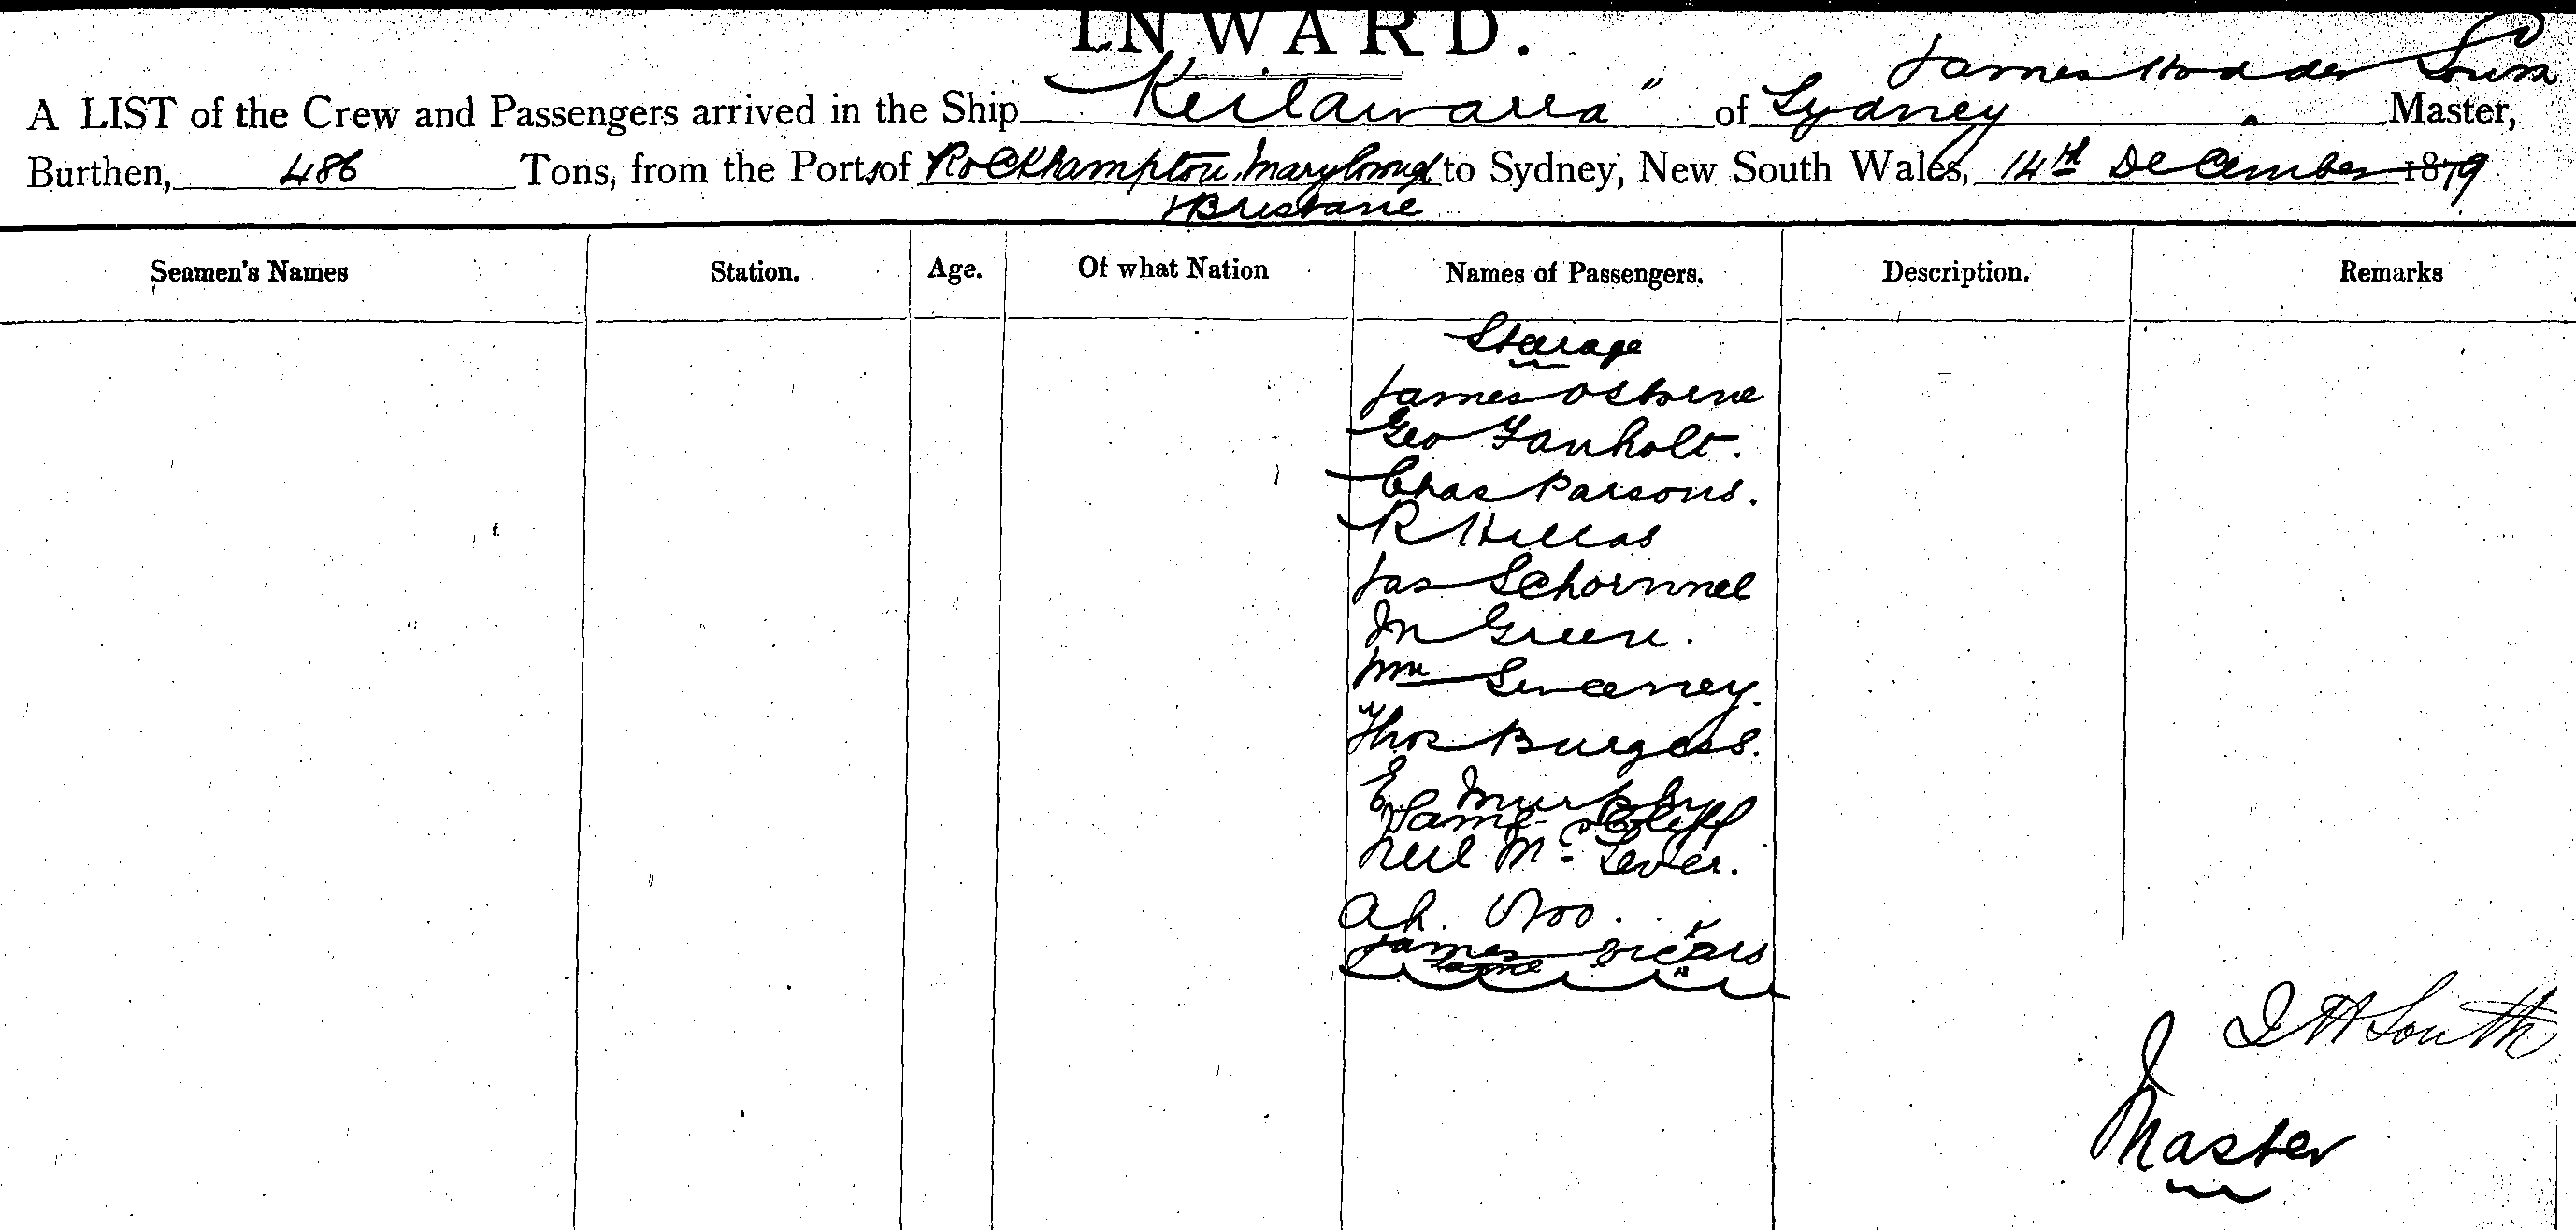 INWARD.
James Hodder South
A LIST of the Crew and Passengers arrived in the Ship "Keilawarra" of Sydney Master,
Burthen, 486 Tons, from the Ports of Rockhampton, Maryboroug to Sydney, New South Wales, 14th December 1879
& Brisbane
Seamen's Names Station. Age. Of what Nation Names of Passengers. Description. Remarks
Stearage
James Osborne
Geo Fanholt.
Chas Parsons.
R Hillas
Jas Schornnel
Jn Green.
Wm Sweeney.
Thos Burgess.
E Murphy
Saml Cliff
Neil Mc Lever.
Ah. Woo.
James Vicars
J H South
Master